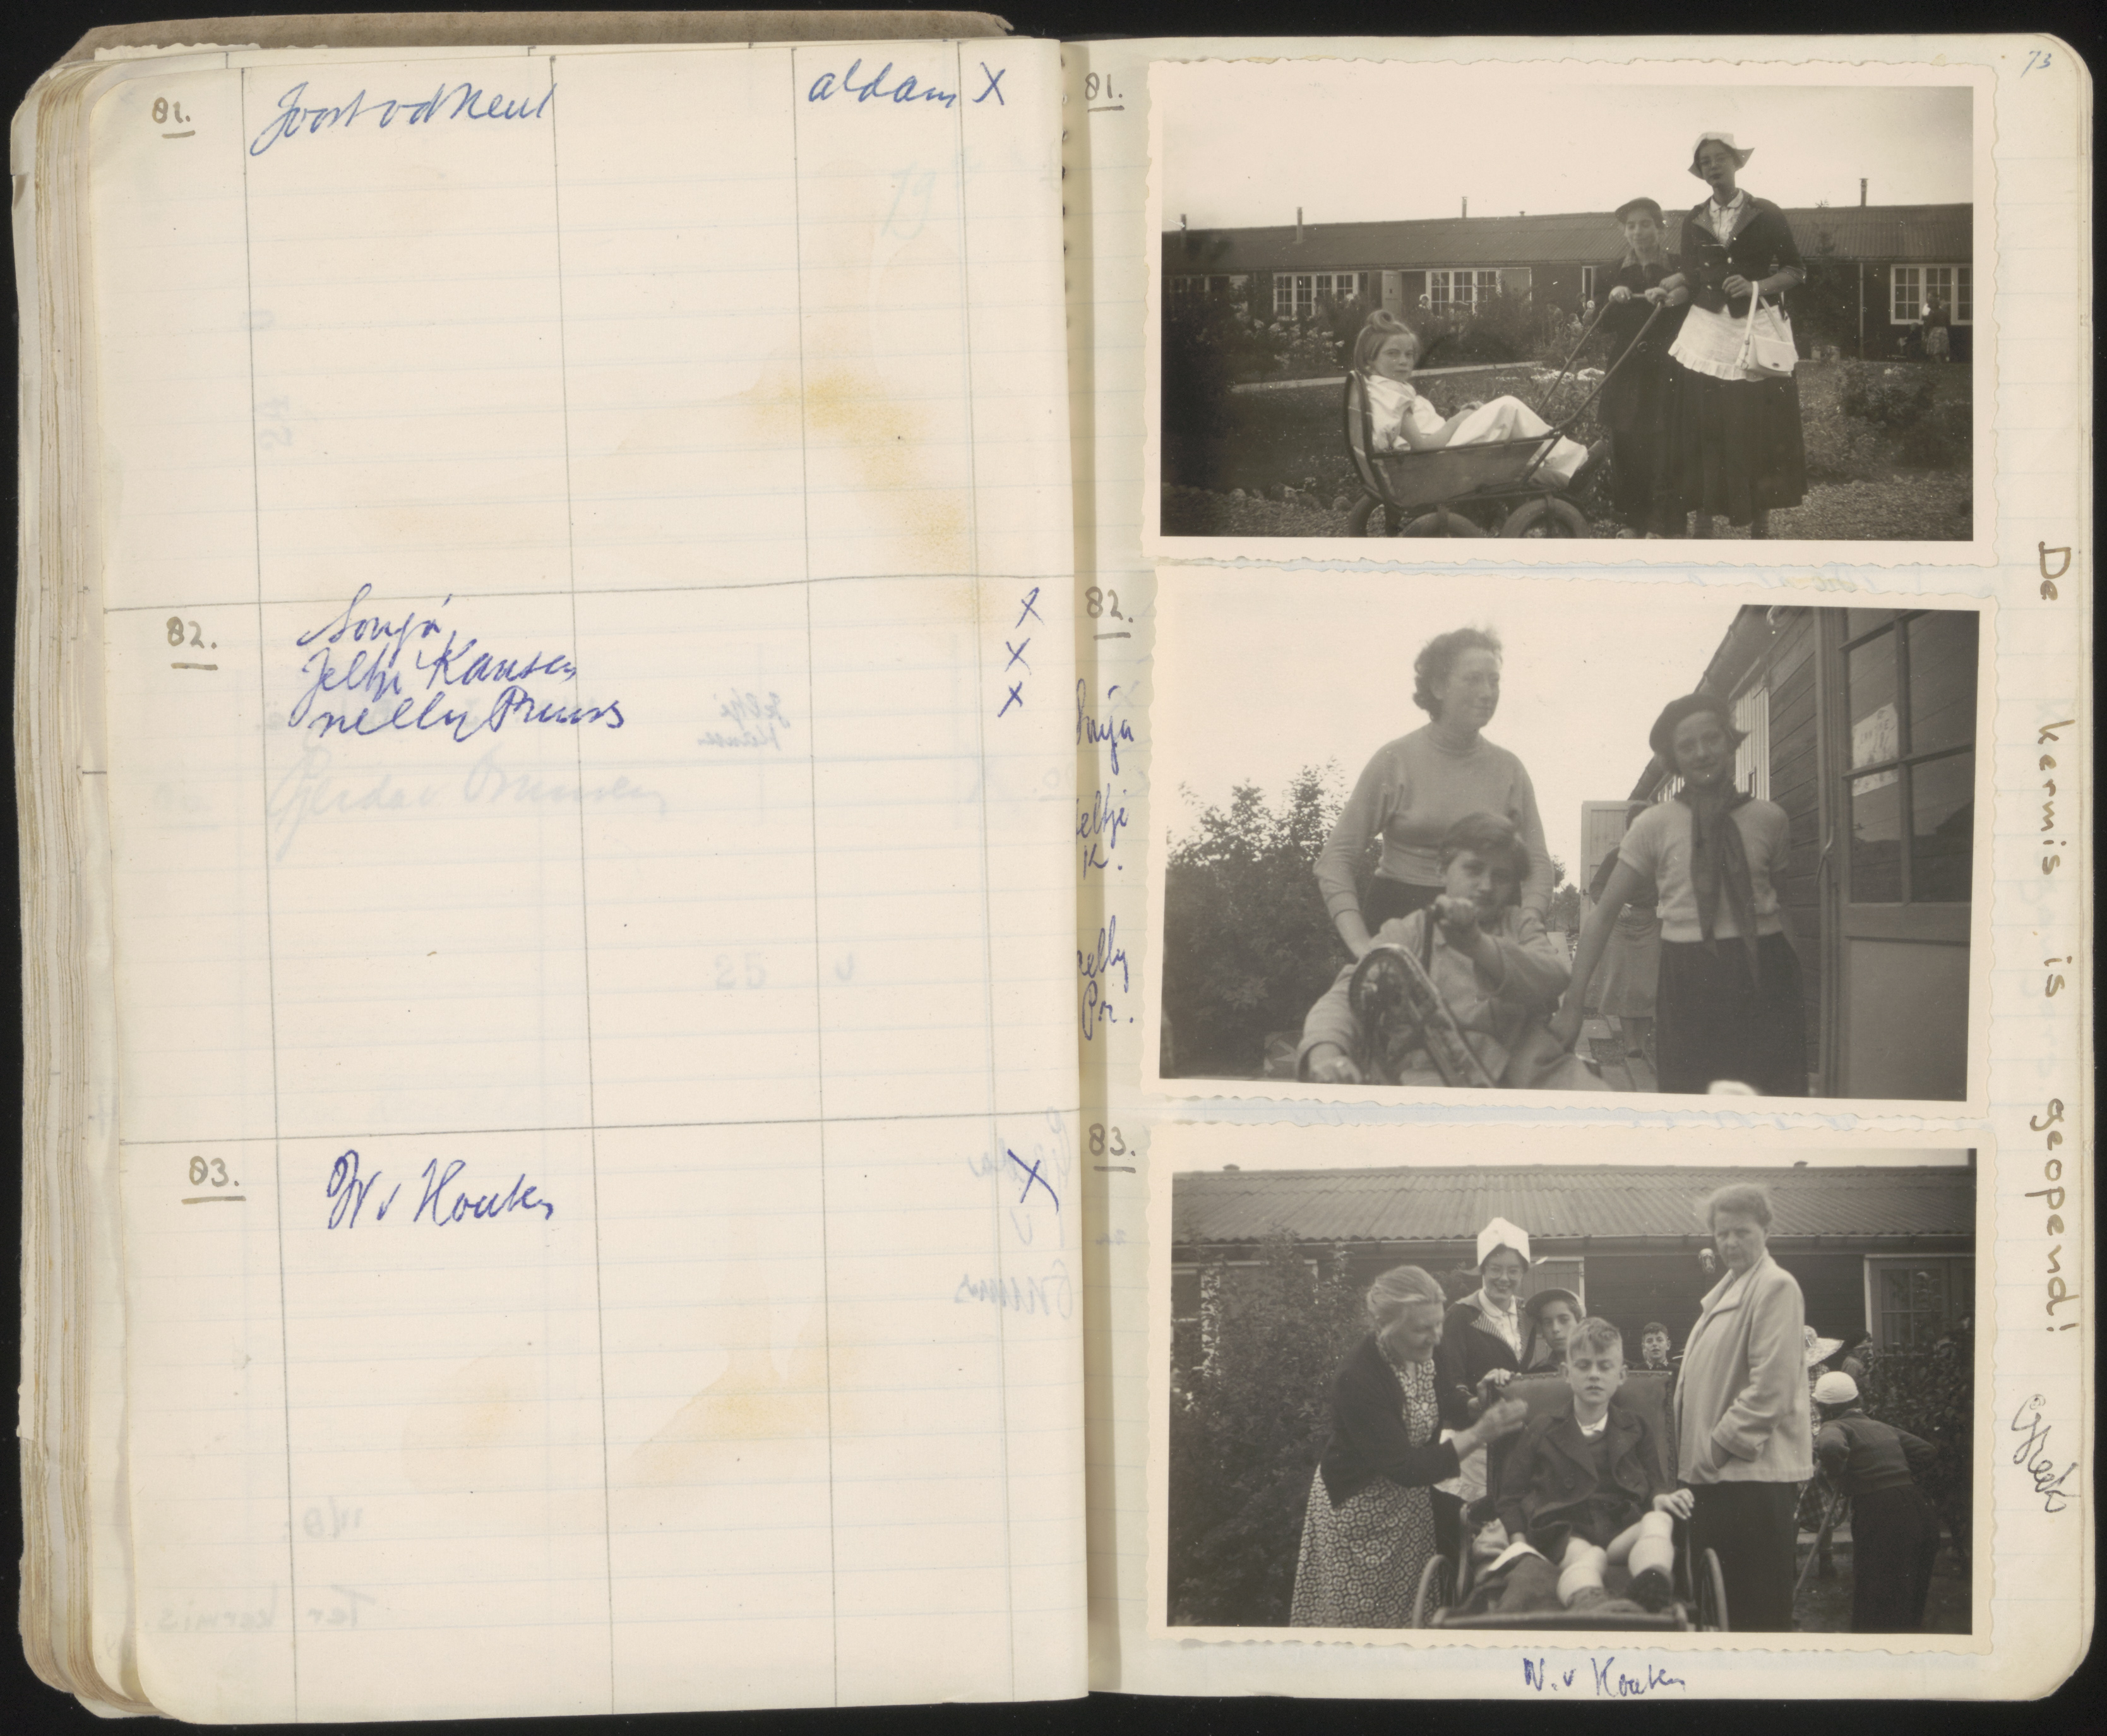 81.
Joost vd Neut
aldam X
82.
Sonja
X
Jeltje Kansen
X
nelly Pruns
X
83.
W v Houten
X
73
81.
82.
Sonja
eltje
K.
nelly
Pr.
83.
De kermis is geopend!
W. v Houten